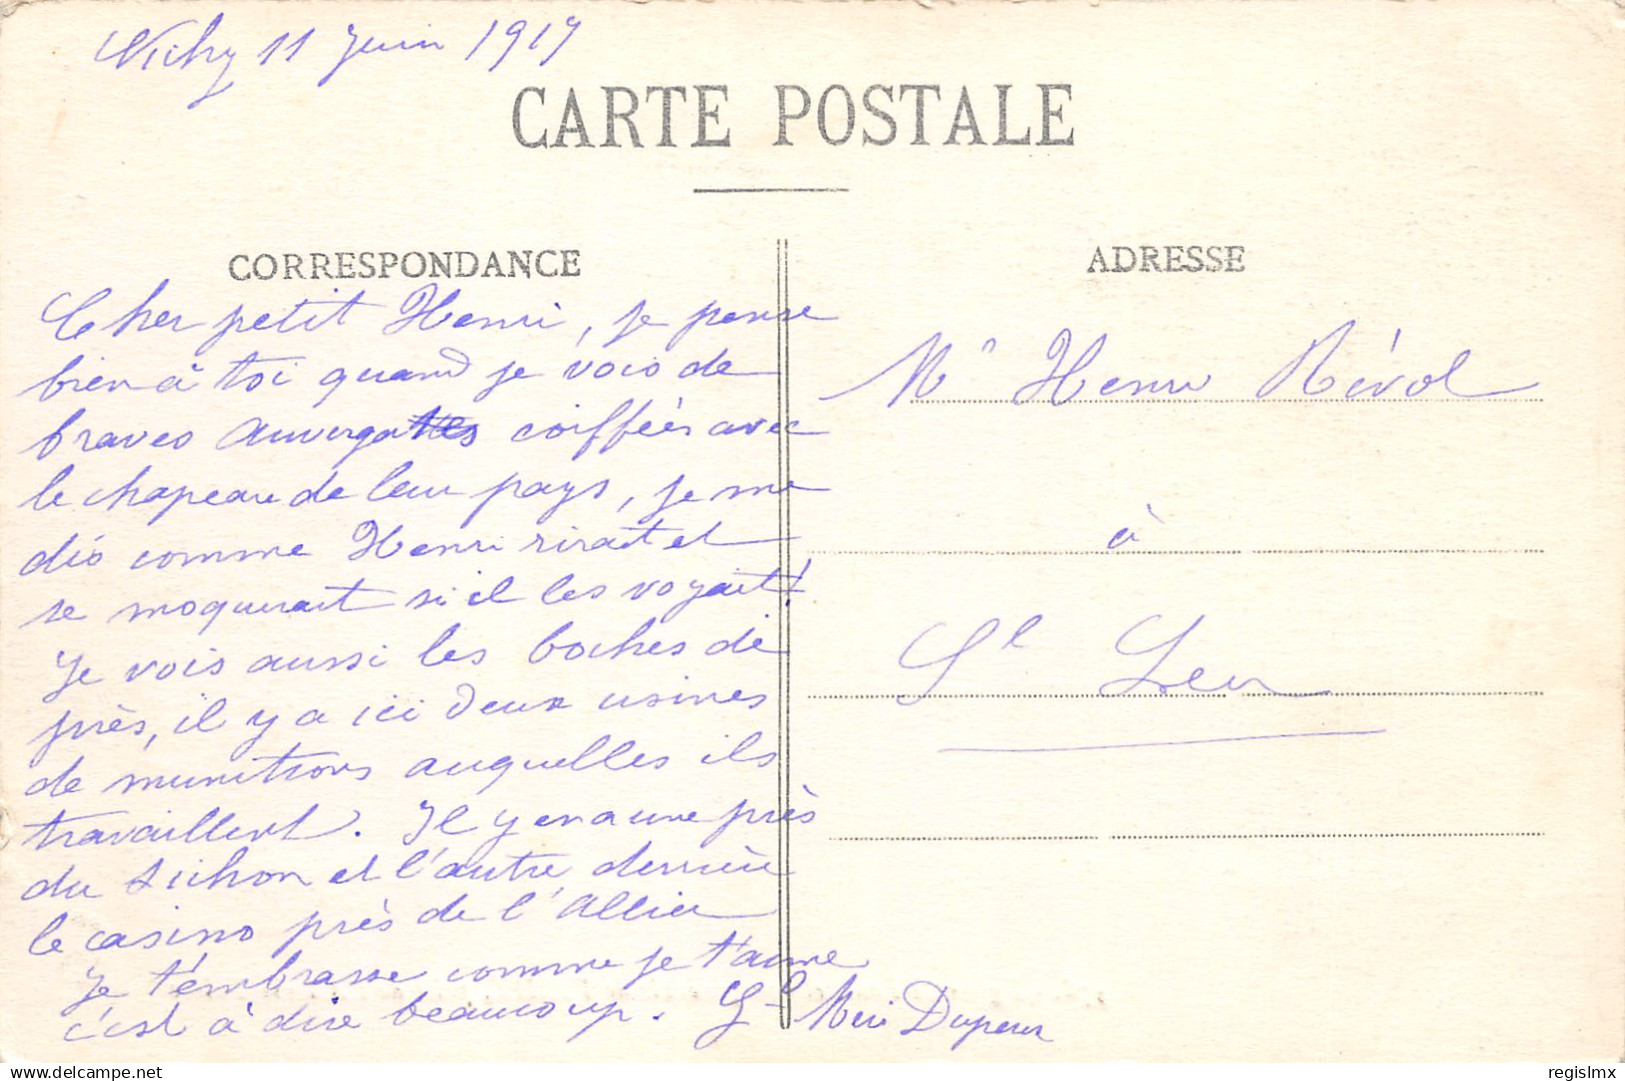 Vichy 11 Juin 1917
CARTE POSTALE
CORRESPONDANCE
Cher petit Henri, je pense
bien à toi quand je vois de
braves auvergates coiffées avec
le chapeau de leur pays, je me
dis comme Henri rirait et
se moquerait si il les voyait!
Je vois aussi les boches de
près, il y a ici deux usines
de munitions auquelles ils
travaillent. Il y en a une près
du Sichon et l'autre derrière
le casino près de l'Allier
Je t'embrasse comme je t'aime
c'est à dire beaucoup. Gd Mère Dupeux
ADRESSE
Mr Henri Révol
à
St Leu
regislmx